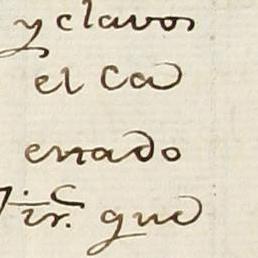 y clavos
el Ca
errado
que